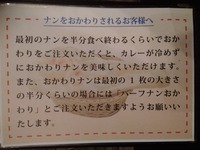 ナンをおかわりされるお客様へ
最初のナンを半分食べ終わるくらいでおか
わりをご注文いただくと、カレーが冷めず
におかわりナンを美味しくいただけます。
また、おかわりナンは最初の1枚の大きさ
の半分くらいの場合には「ハーフナンおか
わり」とご注文いただきますようお願いい
たします。